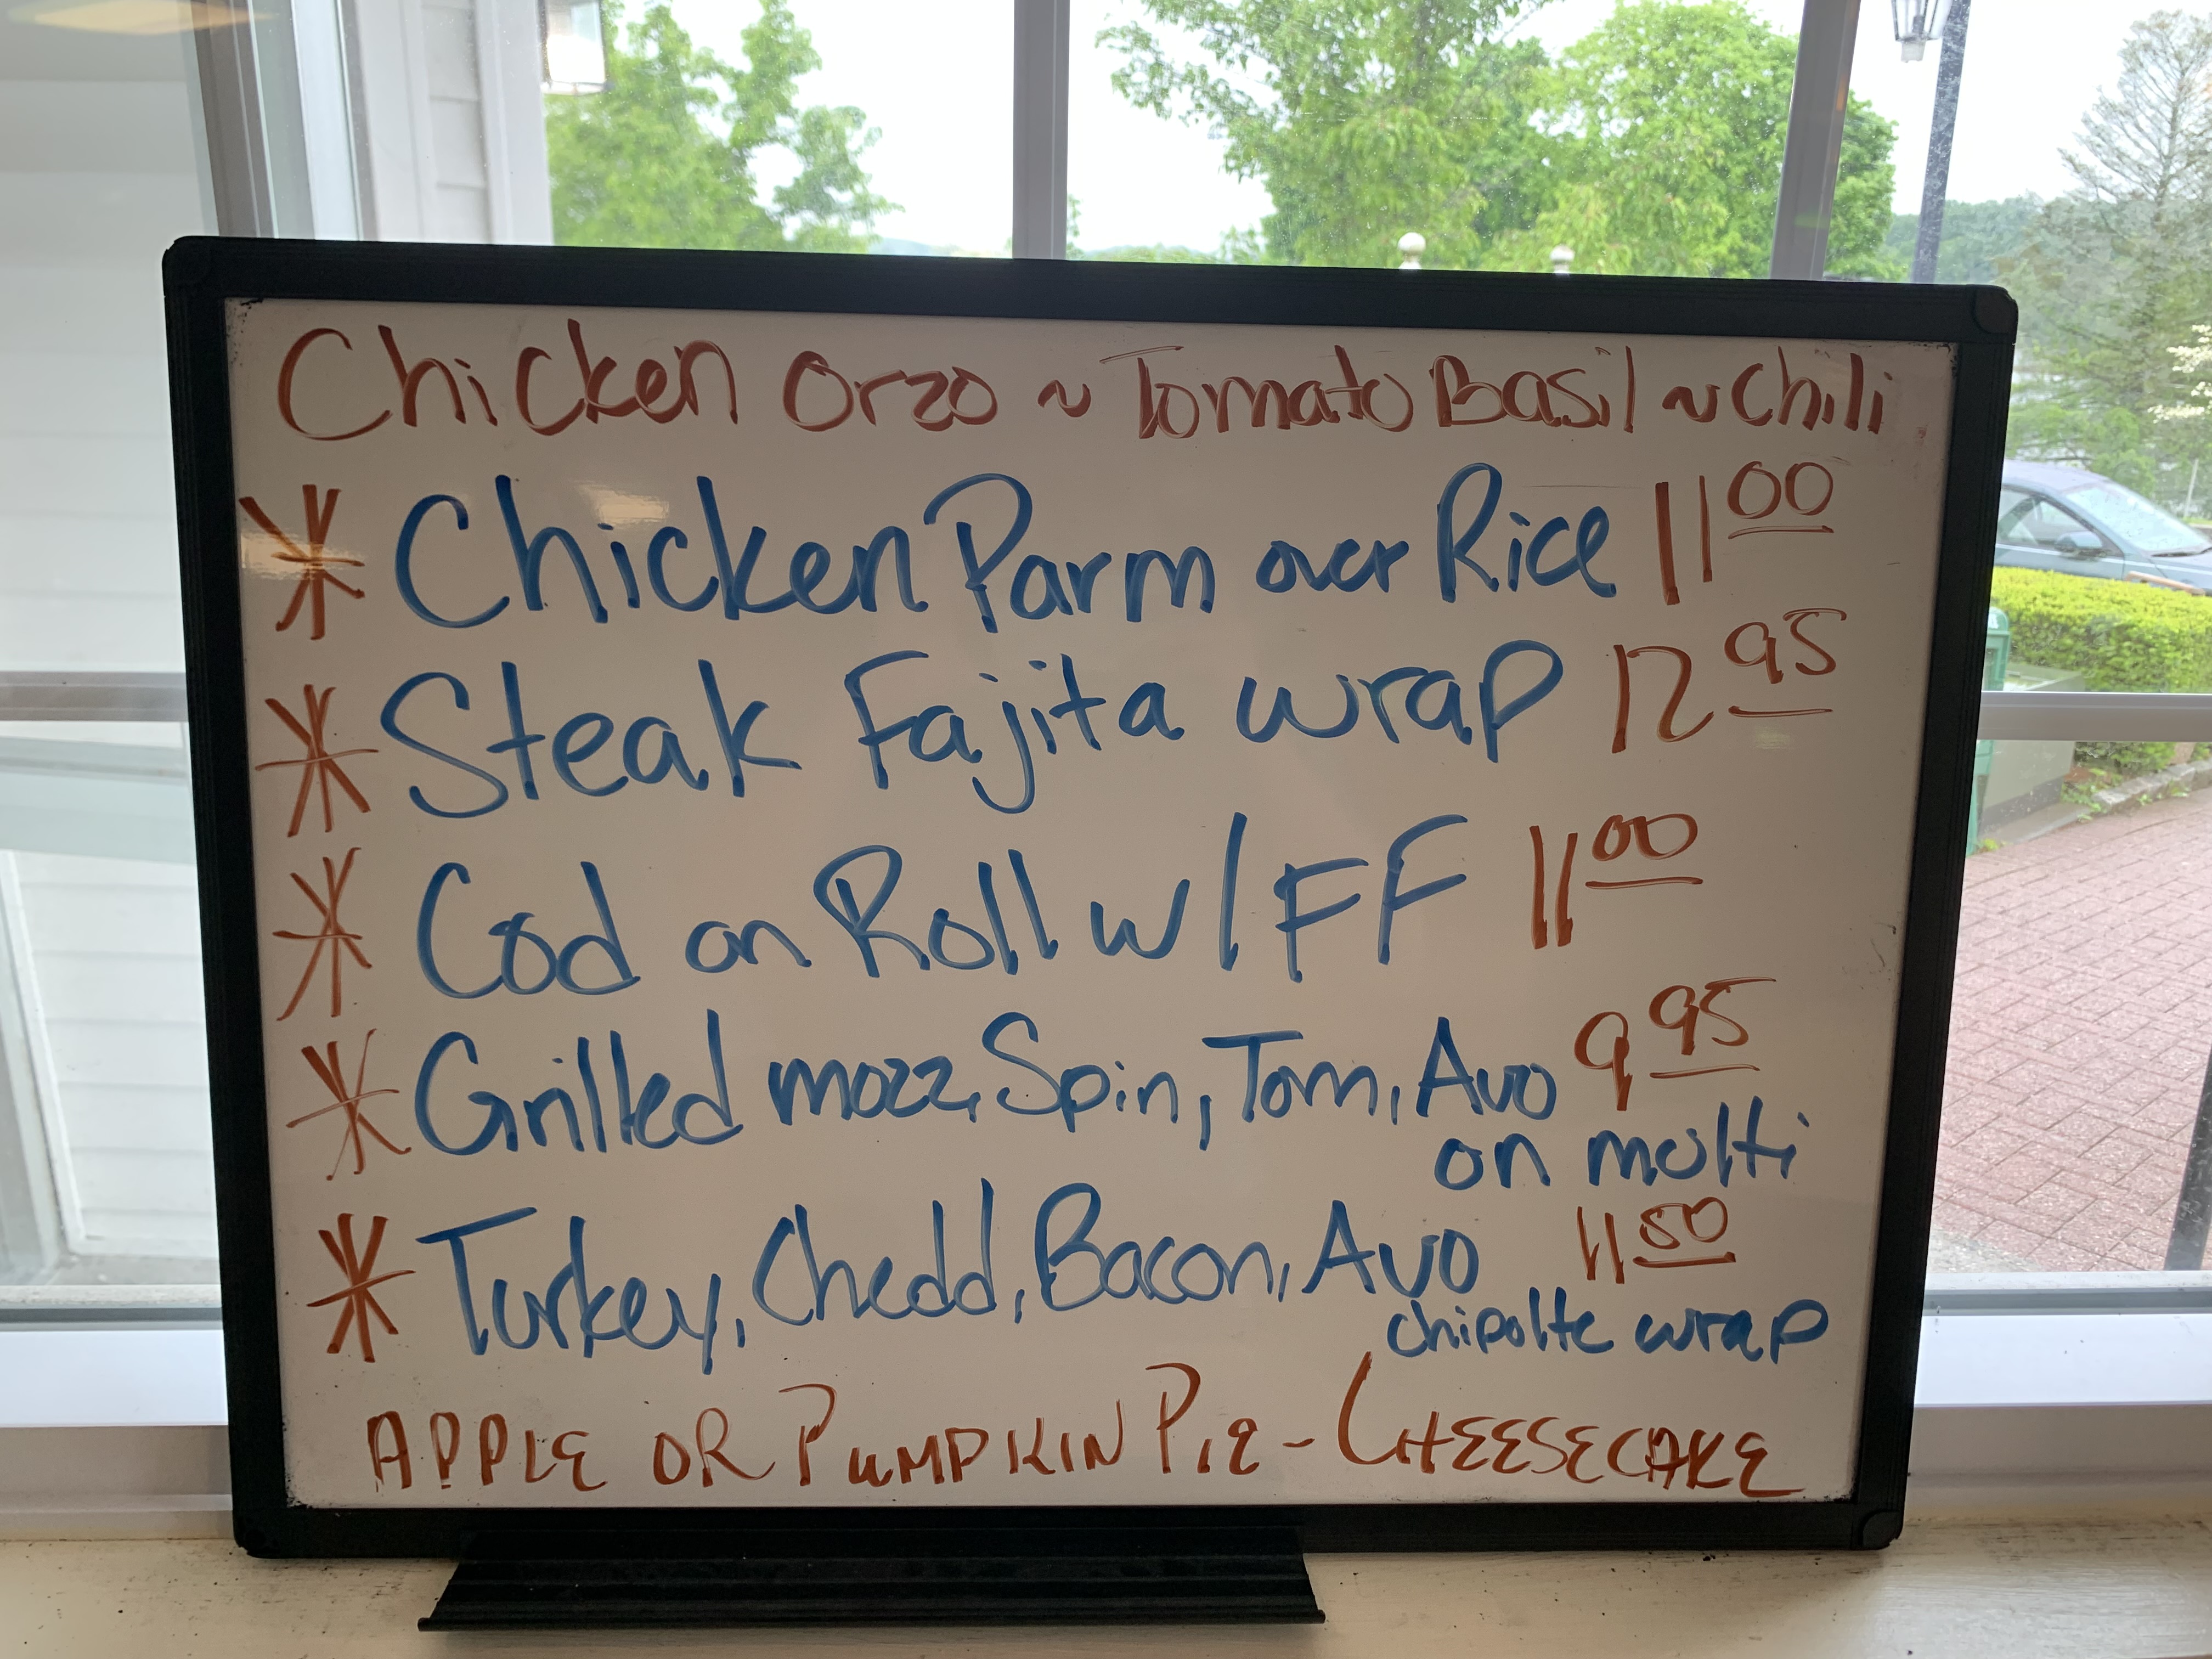 Chicken Orzo ~ Tomato Basil ~ Chili
* Chicken Parm over Rice 11 00
* Steak Fajita wrap 12 95
* Cod on Roll w/ FF 11 00
* Grilled mozz, Spin, Tom, Avo 9 95
on multi
* Turkey, Chedd, Bacon, Avo 11 50
chipolte wrap
APPLE OR PUMPKIN PIE - CHEESECAKE